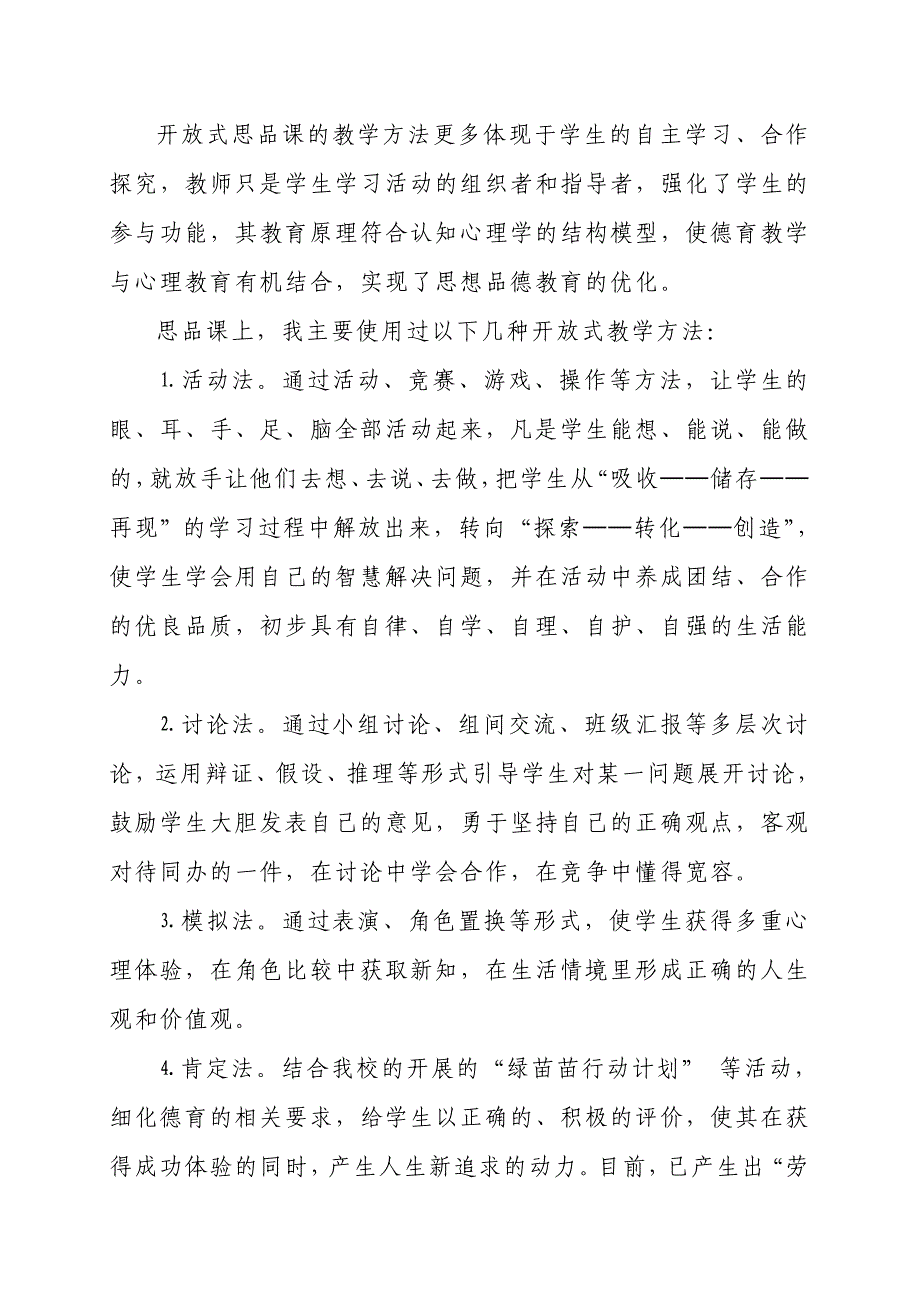 开放式思品课的教学方法更多体现于学生的自主学习、合作
探究，教师只是学生学习活动的组织者和指导者，强化了学生的
参与功能，其教育原理符合认知心理学的结构模型，使德育教学
与心理教育有机结合，实现了思想品德教育的优化。
思品课上，我主要使用过以下几种开放式教学方法：
⒈活动法。通过活动、竞赛、游戏、操作等方法，让学生的
眼、耳、手、足、脑全部活动起来，凡是学生能想、能说、能做
的，就放手让他们去想、去说、去做，把学生从“吸收——储存——
再现”的学习过程中解放出来，转向“探索——转化——创造”，
使学生学会用自己的智慧解决问题，并在活动中养成团结、合作
的优良品质，初步具有自律、自学、自理、自护、自强的生活能
力。
⒉讨论法。通过小组讨论、组间交流、班级汇报等多层次讨
论，运用辩证、假设、推理等形式引导学生对某一问题展开讨论，
鼓励学生大胆发表自己的意见，勇于坚持自己的正确观点，客观
对待同办的一件，在讨论中学会合作，在竞争中懂得宽容。
⒊模拟法。通过表演、角色置换等形式，使学生获得多重心
理体验，在角色比较中获取新知，在生活情境里形成正确的人生
观和价值观。
⒋肯定法。结合我校的开展的“绿苗苗行动计划” 等活动，
细化德育的相关要求，给学生以正确的、积极的评价，使其在获
得成功体验的同时，产生人生新追求的动力。目前，已产生出“劳